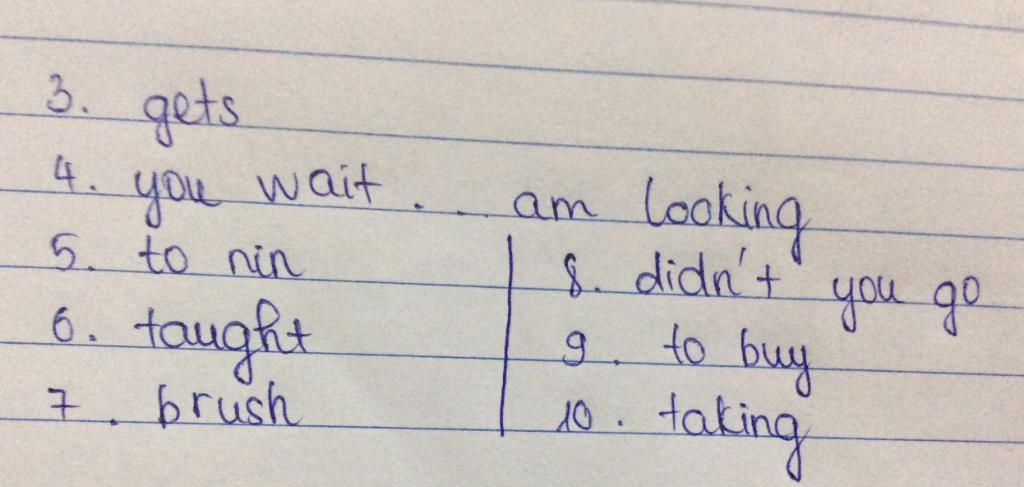 3. gets
4. you wait ... am looking
5. to nin
6. taught
7. brush
8. didn't you go
9. to buy
10. taking